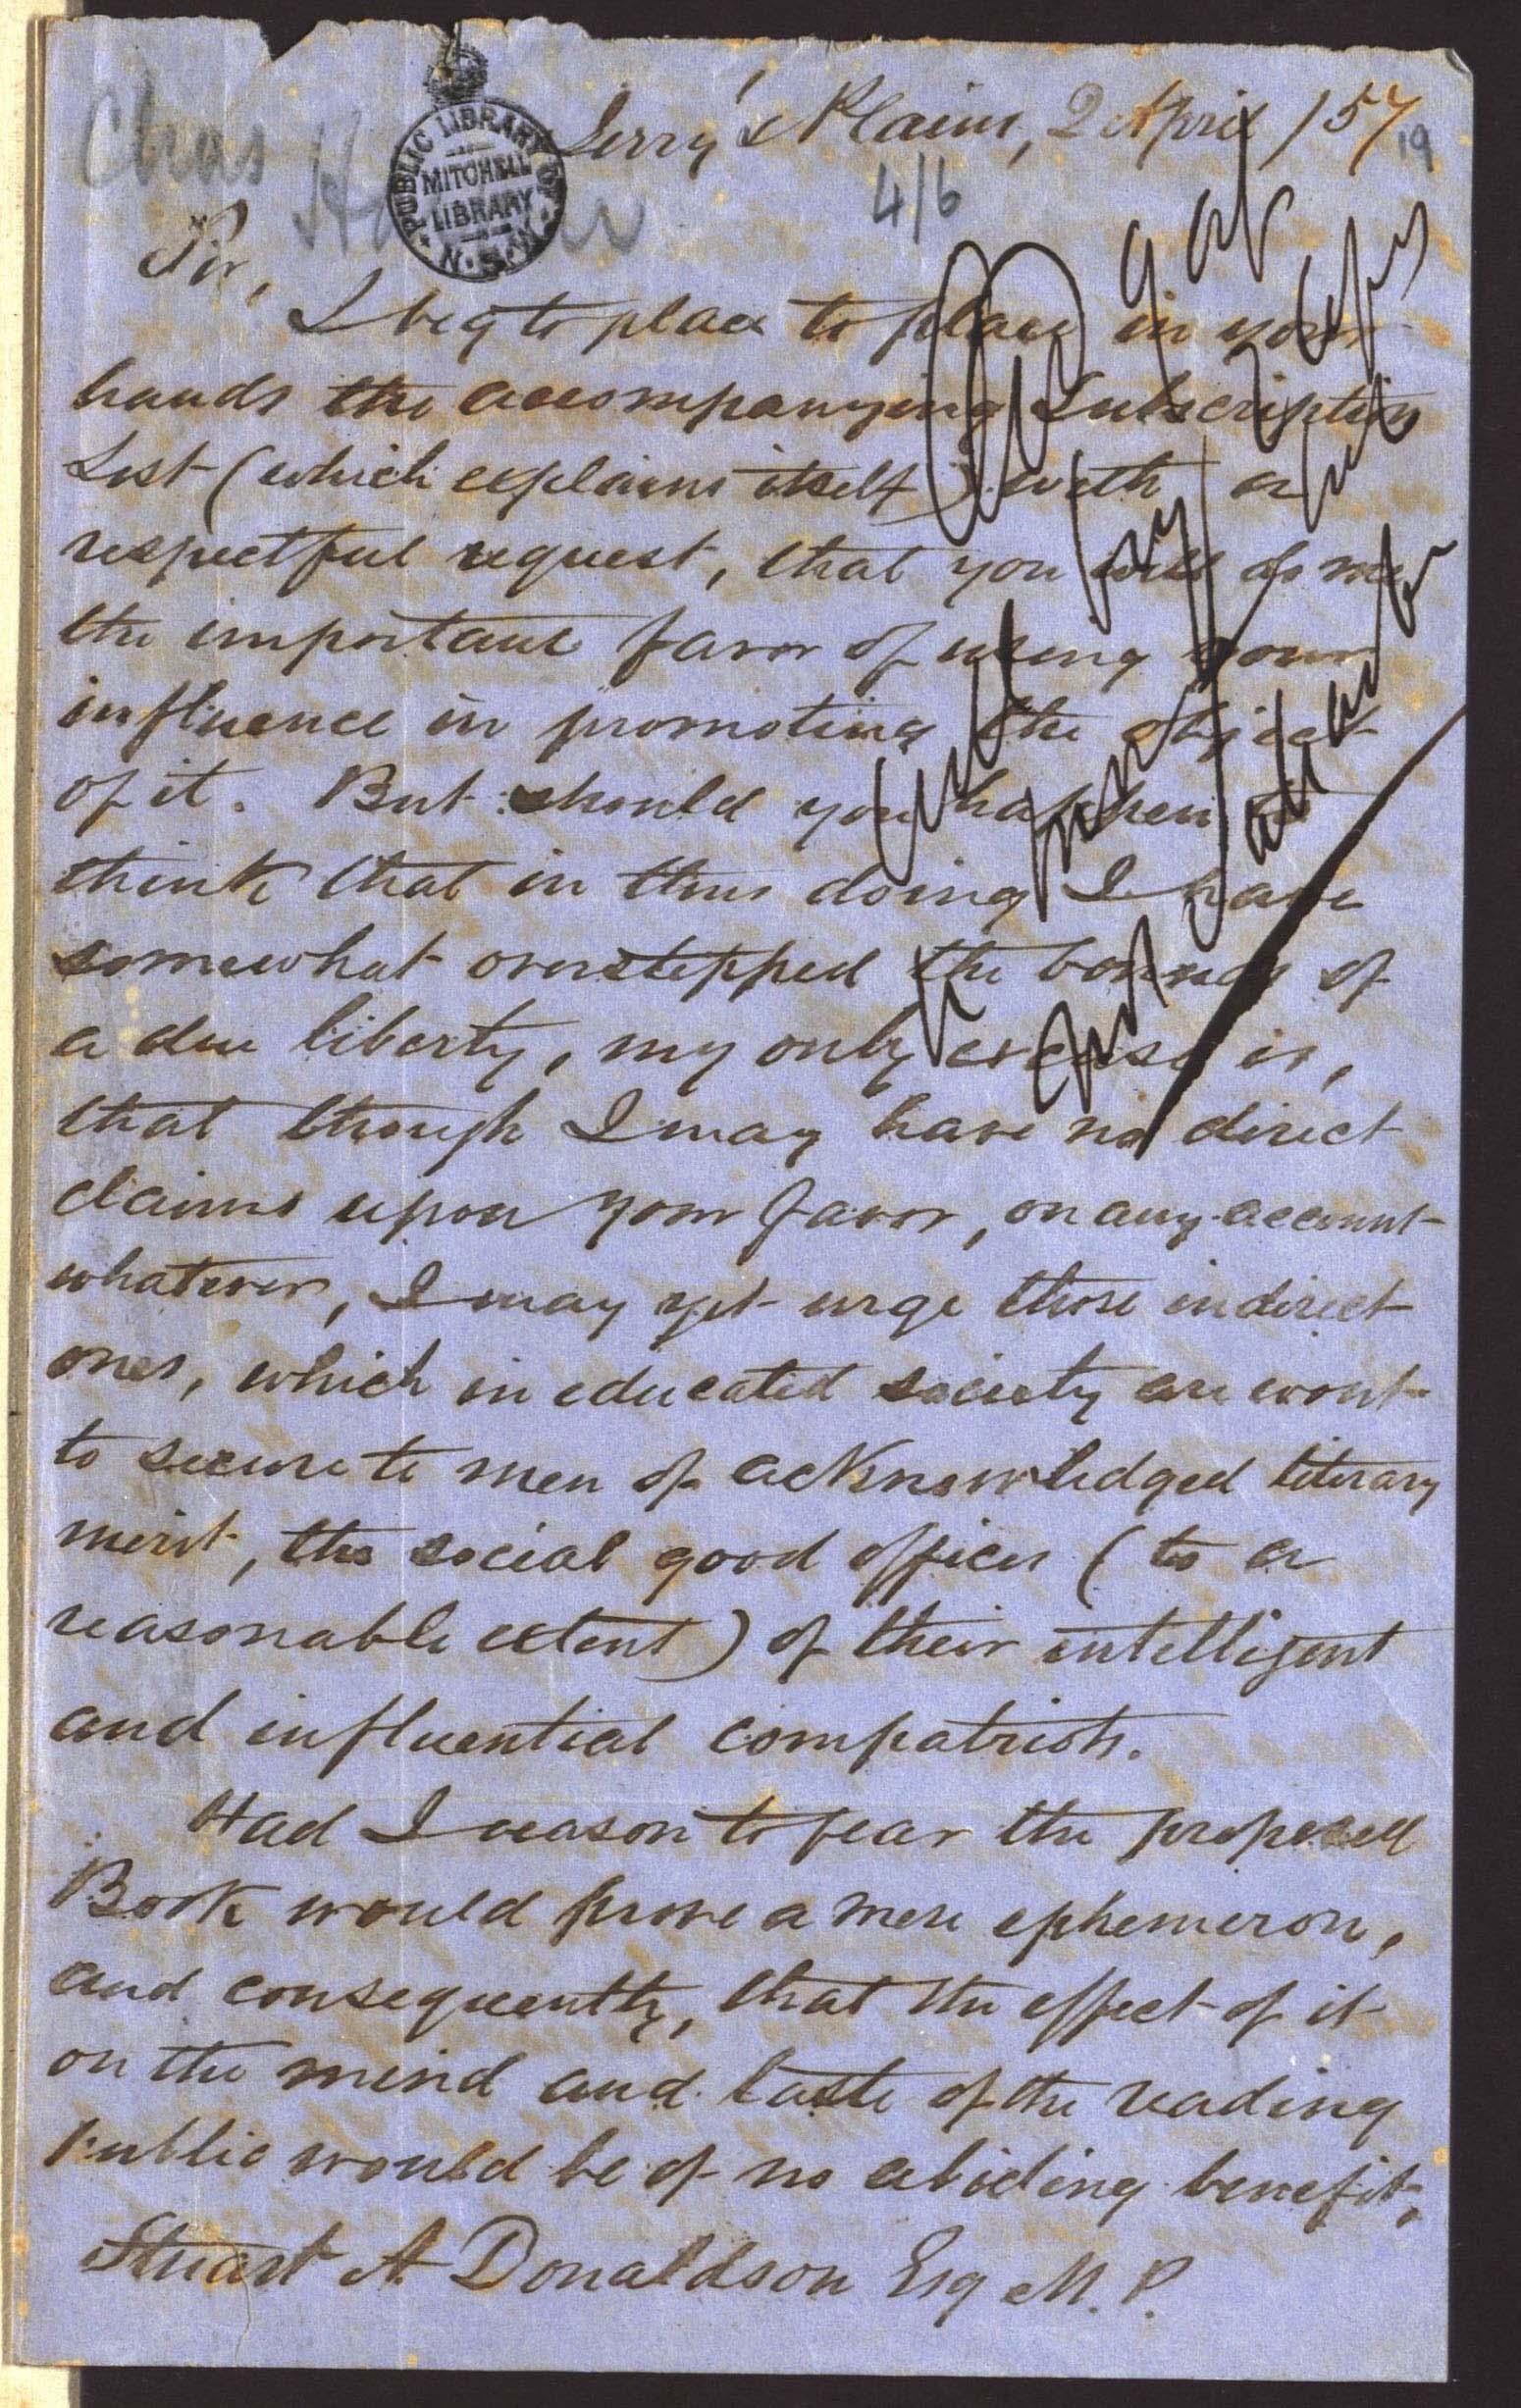 Jerry's Plains, 2 April /57
19
Chas
4/6
PUBLIC LIBRARY OF
MITCHELL
LIBRARY
N.S.W.
Sir,
I beg to place to place in your
hands the accompanying Subscription
List (which explains itself) with a
respectful request, that you will do me
the important favor of using your
influence in promoting the object
of it. But should you happen to
think that in thus doing I have
somewhat overstepped the bounds of
a due liberty, my only excuse is,
that though I may have no direct
claims upon your favor, on any account
whatever, I may yet urge those indirect
ones, which in educated society are wont
to secure to men of acknowledged literary
merit, the social good offices (to a
reasonable extent) of their intelligent
and influential compatriots.
Had I reason to fear the proposed
Book would prove a mere ephemeron,
and consequently, that the effect of it
on the mind and taste of the reading
Public would be of no abiding benefit,
Stuart A Donaldson Esq M.P.